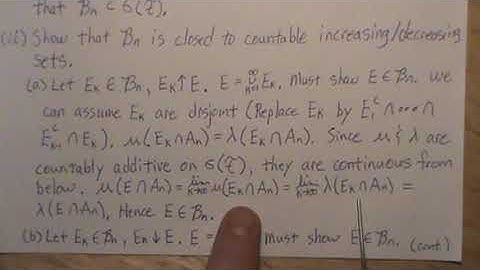 that Bn ⊂ σ(F).
(ii) Show that Bn is closed to countable increasing/decreasing
sets.
(a) Let Ek ∈ Bn, Ek ↑ E. E = ∪_{k=1}^∞ Ek. Must show E ∈ Bn. We
can assume Ek are disjoint (Replace Ek by E₁ᶜ ∩ ⋯ ∩
E_{k-1}ᶜ ∩ Ek), μ(Ek ∩ An) = λ(Ek ∩ An). Since μ & λ are
countably additive on σ(F), they are continuous from
below, μ(E ∩ An) = lim_{k→∞} μ(Ek ∩ An) = lim_{k→∞} λ(Ek ∩ An) =
λ(E ∩ An), Hence E ∈ Bn.
(b) Let Ek ∈ Bn, Ek ↓ E. E = must show E ∈ Bn. (cont.)